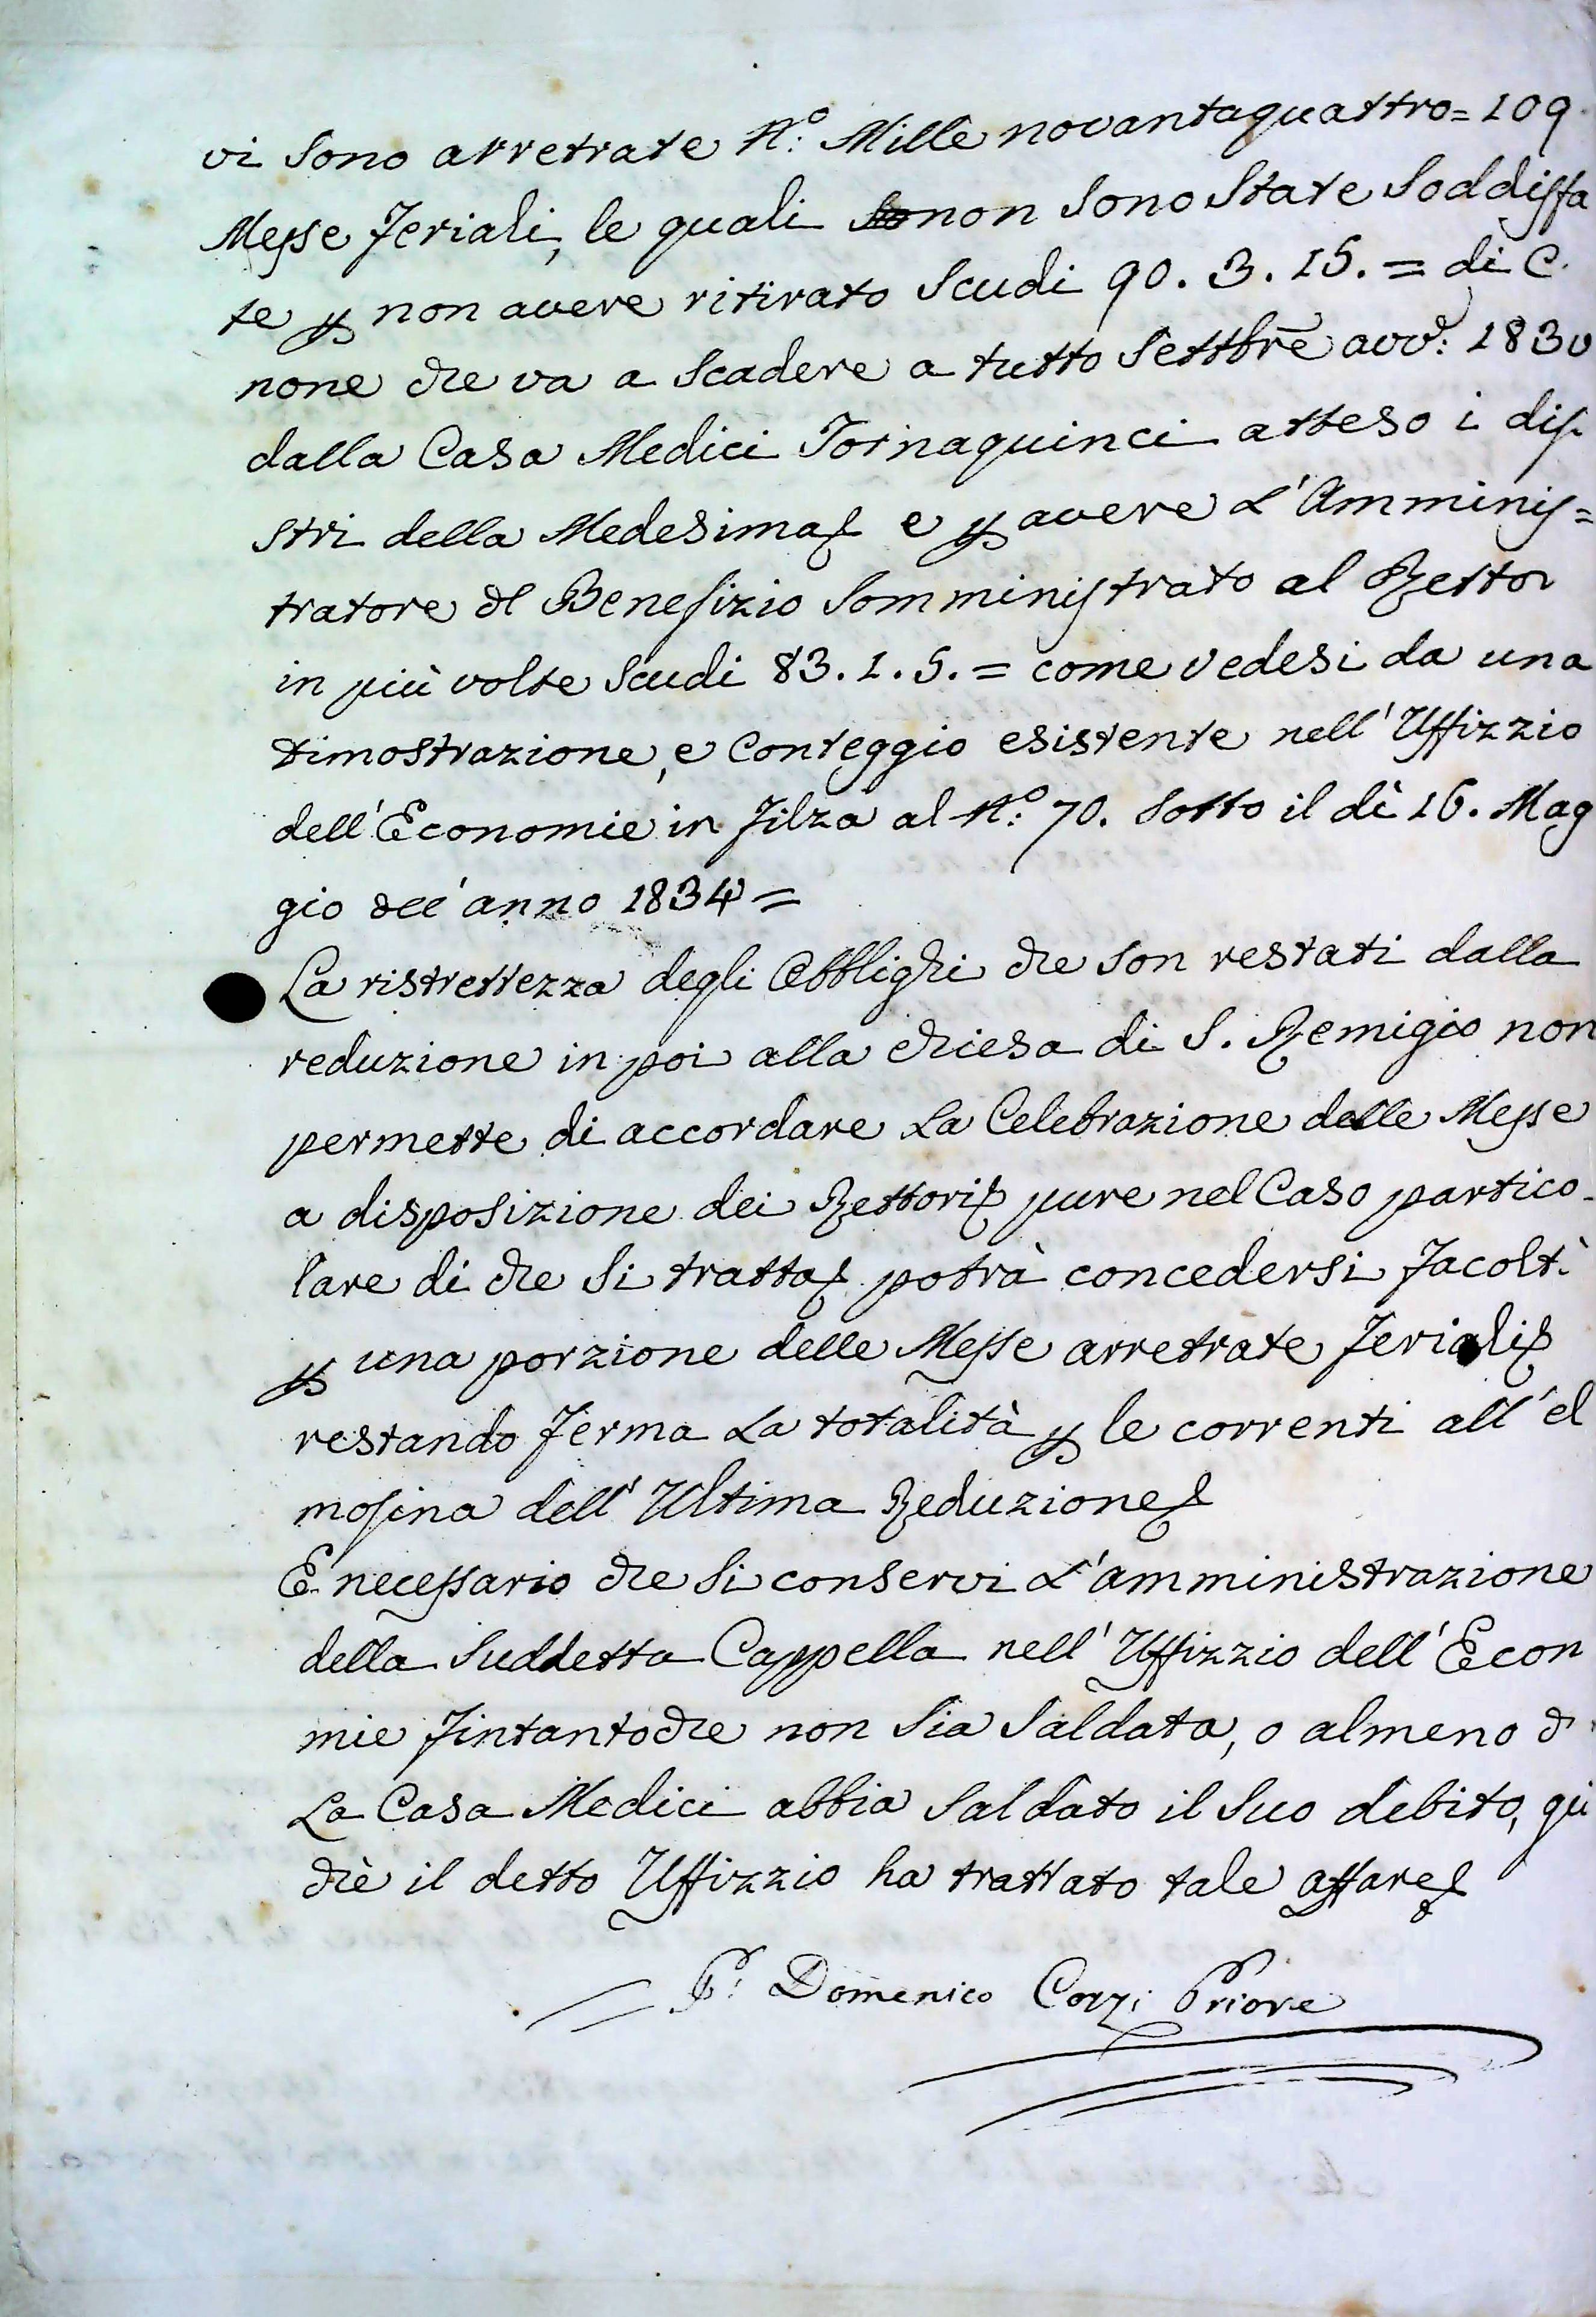 vi Sono arretrate N.º Mille novantaquattro = 109
Messe Feriali, le quali non Sono State Soddisfa
te p non avere ritirato Scudi 90. 3. 15. = di C.
none che va a Scadere a tutto Settbre avv: 1830
dalla Casa Medici Tornaquinci atteso i dis
stri della Medesima e p avere L'Amminis=
tratore dl Benefizio Somministrato al Rettor
in più volte Scudi 83. 1. 5. = come vedesi da una
Dimostrazione, e Conteggio esistente nell' Uffizzio
dell' Economie in Filza al N.º 70. Sotto il dì 16. Mag
gio dell' anno 1834 =
La ristrettezza degli Obblighi che Son restati dalla
reduzione in poi alla chiesa di S. Remigio non
permette di accordare La Celebrazione delle Messe
a disposizione dei Rettori pure nel Caso partico-
lare di che Si tratta potrà concedersi Facolt
p una porzione delle Messe arretrate Feriali
restando Ferma La totalità p le correnti all' el
mosina dell' Ultima Reduzione
E necessario che Si conservi L'amministrazione
della Suddetta Cappella nell' Uffizzio dell' Econ
mie Fintantoche non Sia Saldata, o almeno
La Casa Medici abbia Saldato il Suo debito, gia
chè il detto Uffizzio ha trattato tale affare
P: Domenico Corzi Priore